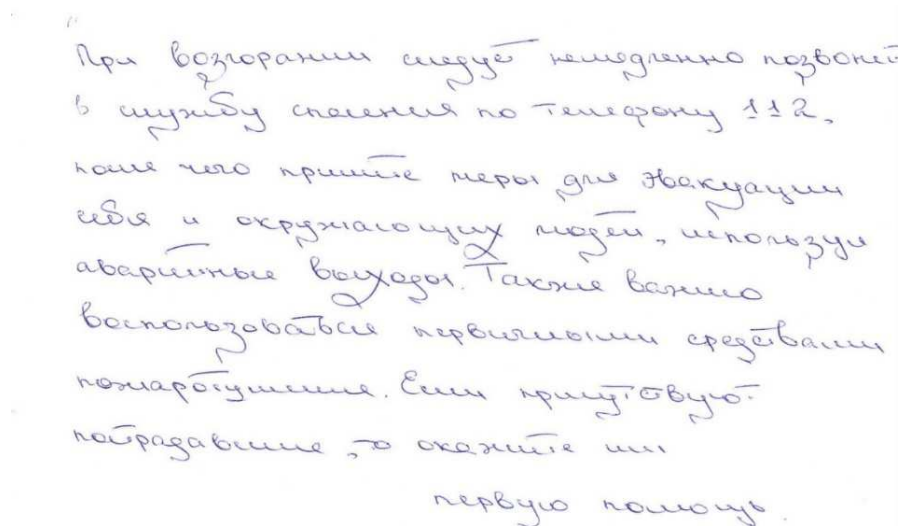 При возгорании следует немедленно позвонить
в службу спасения по телефону 112,
после чего примите меры для эвакуации
себя и окружающих людей, используя
аварийные выходы. Также важно
воспользоваться первичными средствами
пожаротушения. Если присутствуют
пострадавшие, то окажите им
первую помощь.